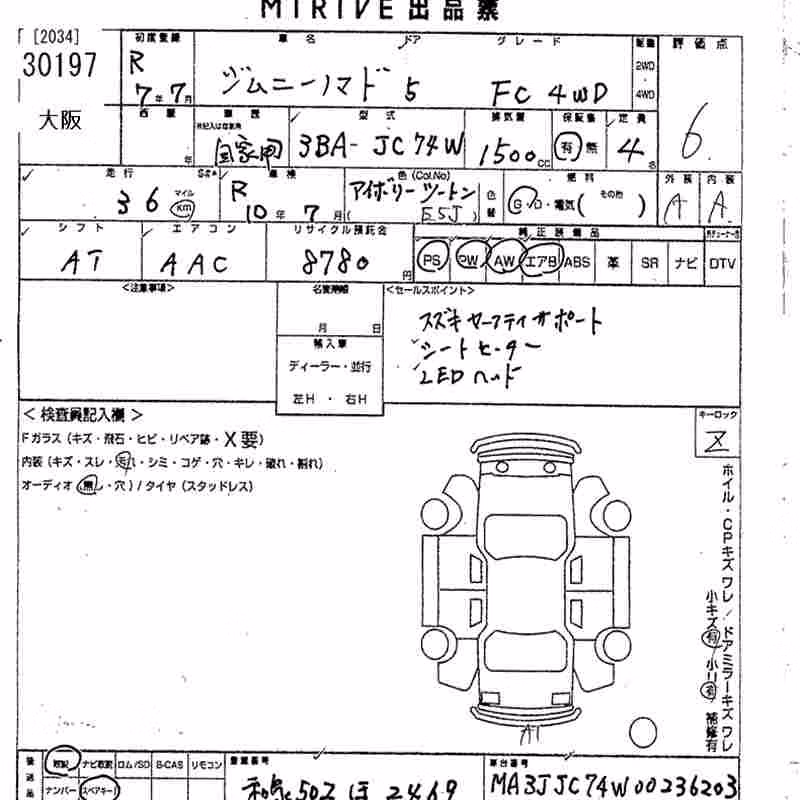 MIRIVE 出品票
[2034]
30197
大阪
初度登録
R
7年7月
車名
ドア
グレード
ジムニーノマド 5 FC 4WD
2WD
・
4WD
評価点
6
年
車歴
自家用
型式
3BA-JC74W
排気量
1500cc
保証書
有 無
定員
4名
走行
36
マイル
km
車検
R
10年7月
色(Col.No)
アイボリーツートン
(E5J)
色替
燃料
G・D・電気( その他 )
外装
A
内装
A
シフト
AT
エアコン
AAC
リサイクル預託金
8780円
純正装備品
PS PW AW エアB ABS 革 SR ナビ DTV
<注意事項>
名変期限
月 日
輸入車
ディーラー・並行
左H ・ 右H
<セールスポイント>
スズキセーフティサポート
シートヒーター
LEDヘッド
<検査員記入欄>
Fガラス(キズ・飛石・ヒビ・リペア跡・X要)
内装(キズ・スレ・汚れ・シミ・コゲ・穴・キレ・破れ・割れ)
オーディオ(無し・穴)/タイヤ(スタッドレス)
キーロック
Z
ホイル・CPキズワレ/ドアミラーキズワレ
小キズ有 小凹有 補修有
A1
後送品
取説 ナビ取説 ロム/SD B-CAS リモコン
ナンバー スペアキー
登録番号
車台番号
MA3JJC74W00236203